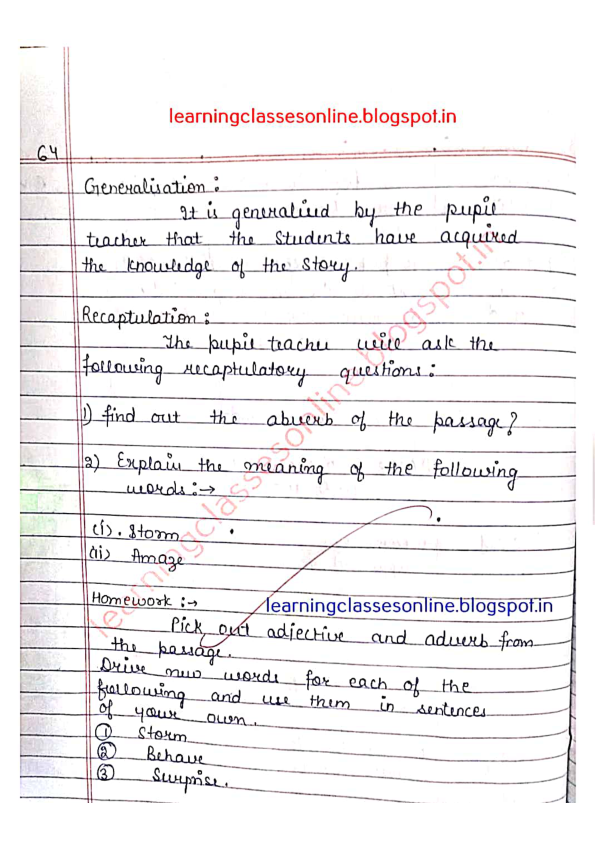 learningclassesonline.blogspot.in
64
Generalisation :
It is generalised by the pupil
teacher that the students have acquired
the knowledge of the story.
Recaptulation :
The pupil teacher will ask the
following recaptulatory questions :
1) find out the abverb of the passage?
2) Explain the meaning of the following
words :→
(i). Storm
(ii) Amaze
Homework :→
learningclassesonline.blogspot.in
Pick out adjective and adverb from
the passage.
Drive new words for each of the
following and use them in sentences
of your own.
① Storm
② Behave
③ Surprise.
learningclassesonline.blogspot.in